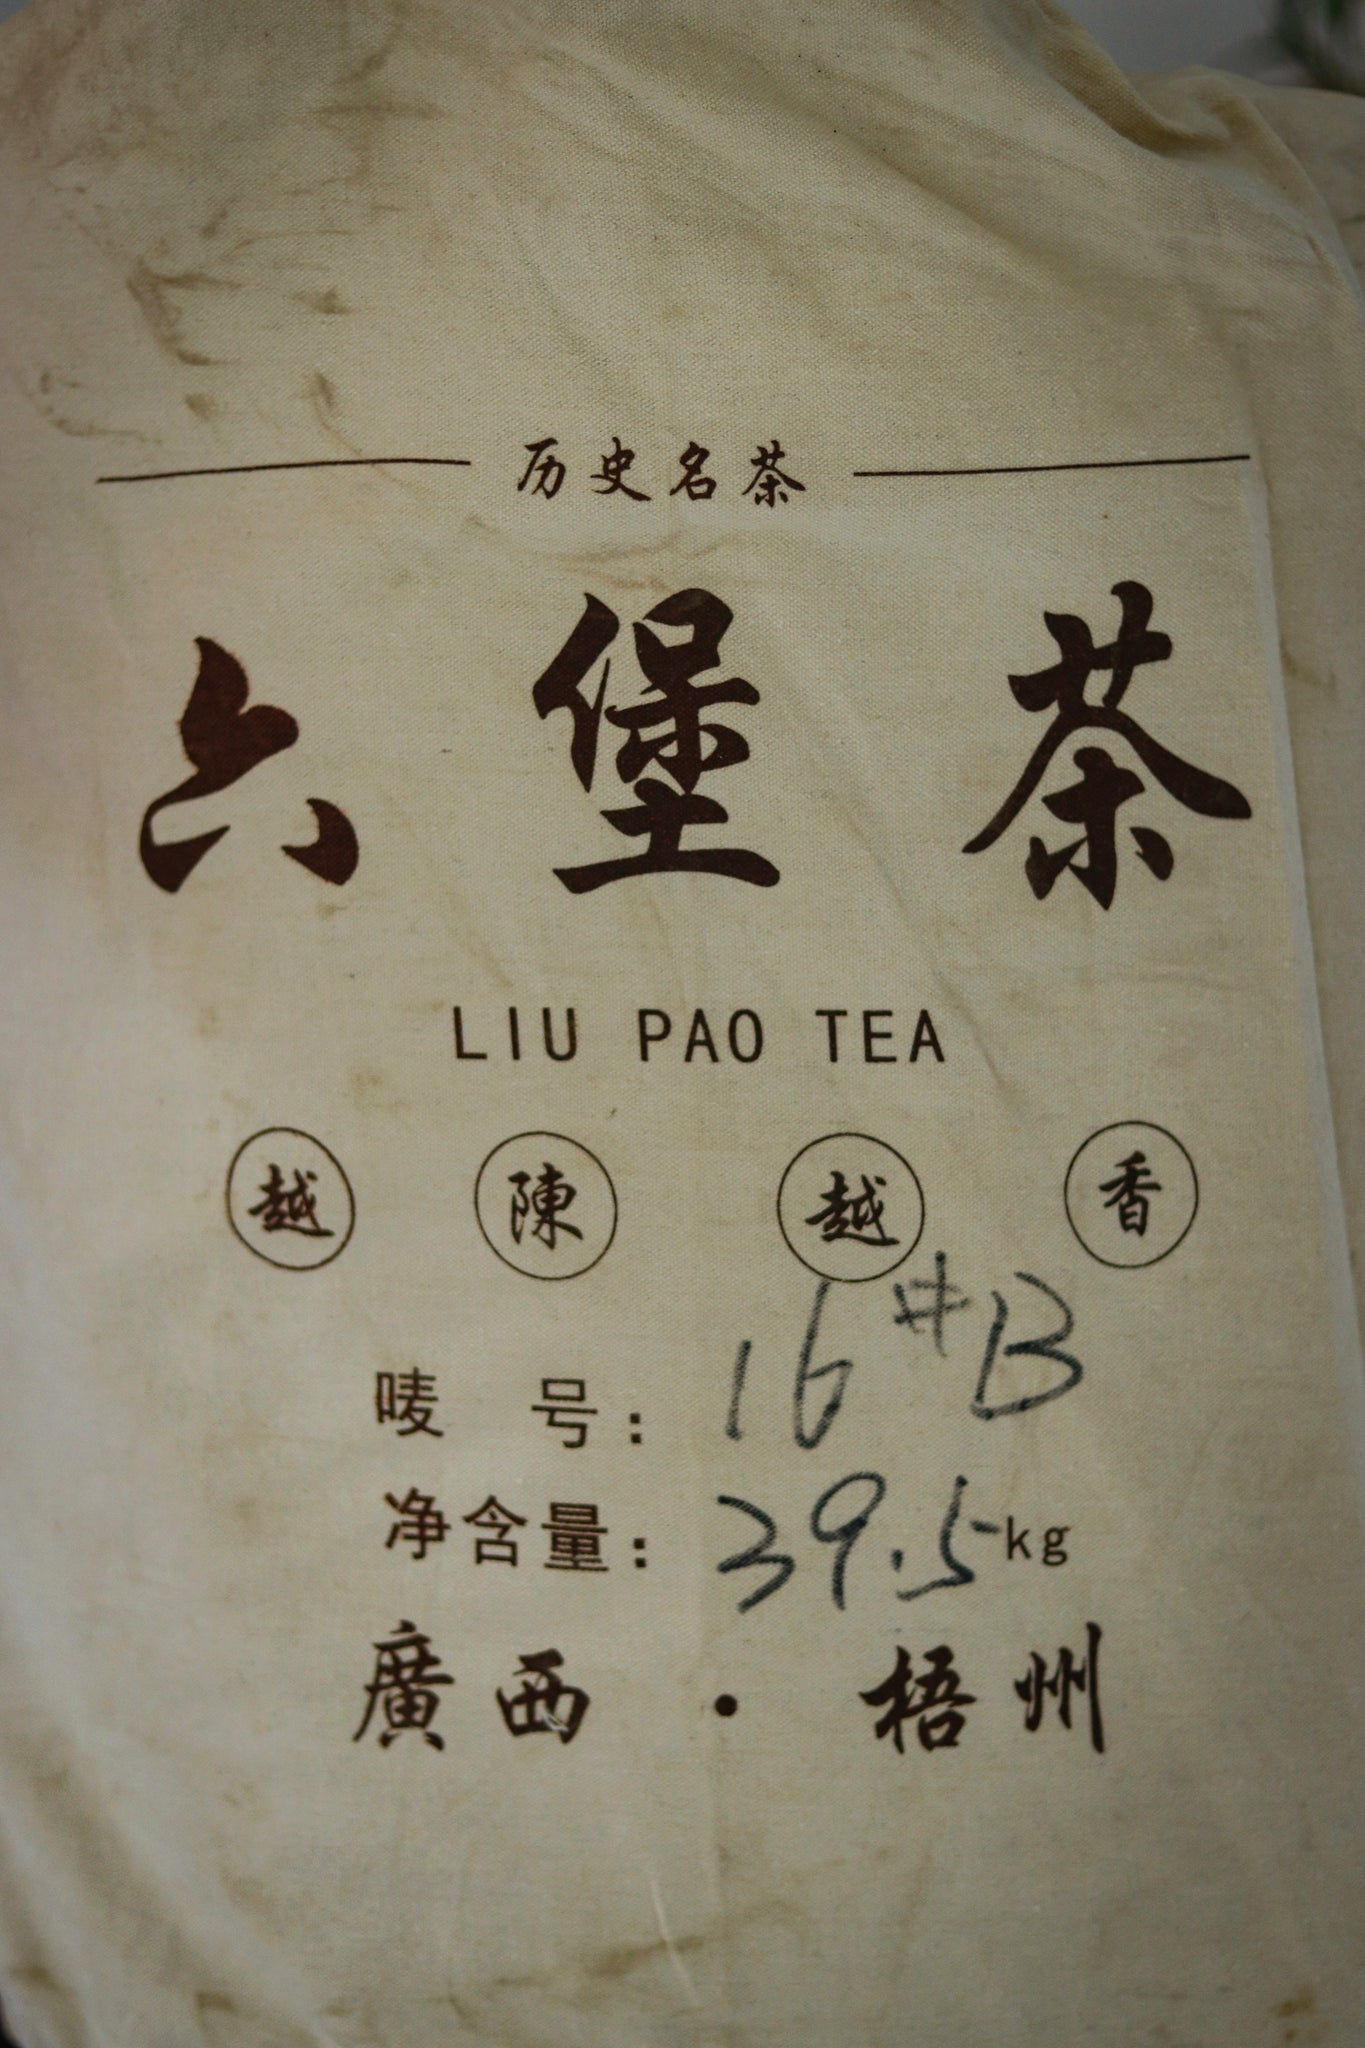 历史名茶
六堡茶
LIU PAO TEA
越陳越香
唛 号: 16#B
净含量: 39.5kg
廣西·梧州